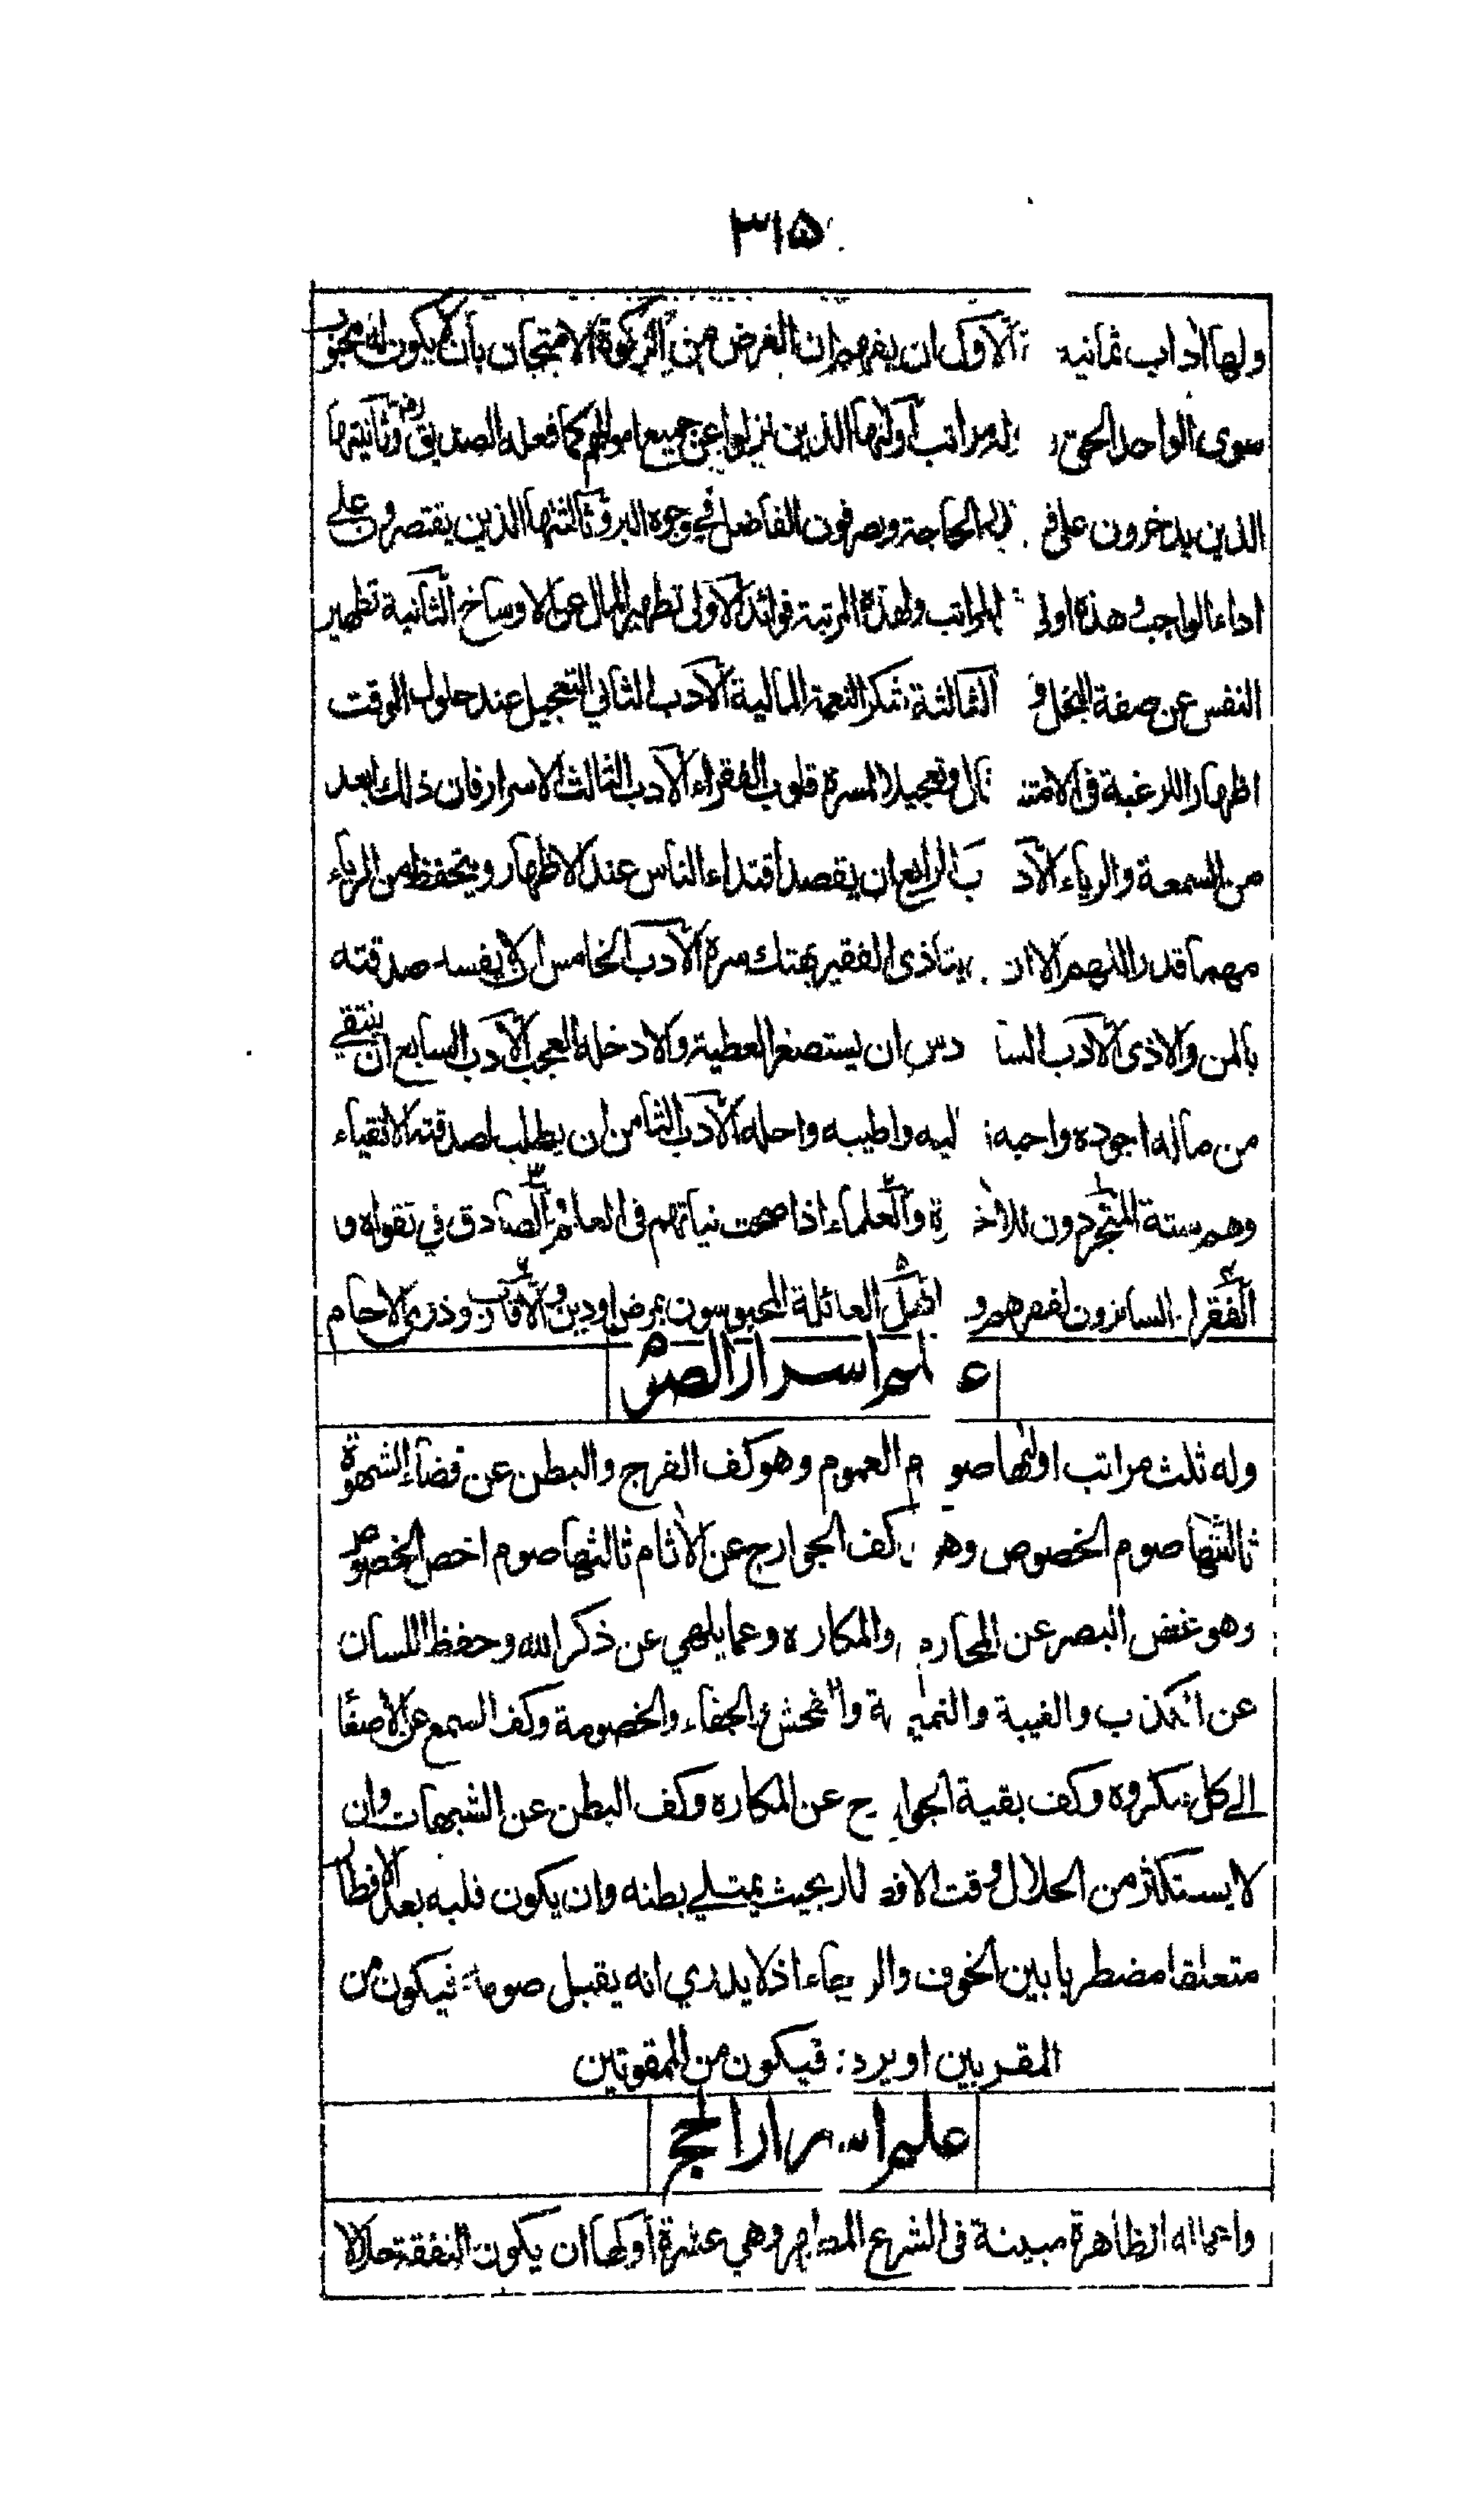 ٣١٥
ولها اداب ثمانية الاول ان يفهم ان الغرض من الزكوة الامتحان بان لا يكون له محبوب
سوى الواحد الحق وله مراتب اولها الذين نزلوا عن جميع اموالهم كما فعله الصديق رض وثانيتها
الذين يدخرون على قدر الحاجة ويصرفون الفاضل في وجوه البر وثالثتها الذين يقتصرون على
اداء الواجب وهذه ادنى المراتب ولهذه المرتبة فوائد الاولى تطهير المال عن الاوساخ الثانية تطهير
النفس عن صفة البخل و الثالثة شكر النعمة المالية الادب الثاني التعجيل عند حلول الوقت
اظهارا للرغبة في الامتثال وتعجيلا لمسرة قلوب الفقراء الادب الثالث الاسرار فان ذلك ابعد
من السمعة والرياء الادب الرابع ان يقصد اقتداء الناس عند الاظهار ويتحفظ من الرياء
مهما قدر اللهم الا ان يتاذى الفقير بهتك سره الادب الخامس ان لا يفسد صدقته
بالمن والاذى الادب السادس ان يستصغر العطية والا دخله العجب الادب السابع ان ينتقي
من ماله اجوده واحبه اليه واطيبه واحله الادب الثامن ان يطلب لصدقته الاتقياء
وهم ستة المتجردون للاخرة والعلماء اذا صحت نياتهم في العلم والصادق في تقواه و
الفقرا الساترون لفقرهم و اهل العائلة المحبوسون بمرض او دين والاقارب وذوى الارحام
علم اسرار الصوم
وله ثلث مراتب اولها صوم العموم وهو كف الفرج والبطن عن قضاء الشهوة
ثالثتها صوم الخصوص وهو كف الجوارح عن الاثام ثالثها صوم اخص الخصوص
وهو غض البصر عن المحارم والمكاره وعما يلهي عن ذكر الله وحفظ اللسان
عن الكذب والغيبة والنميمة والفحش والجفاء والخصومة وكف السمع عن الاصغاء
الى كل مكروه وكف بقية الجوارح عن المكاره وكف البطن عن الشبهات وان
لا يستكثر من الحلال وقت الافطار بحيث يمتلي بطنه وان يكون قلبه بعد الافطار
متعلقا مضطربا بين الخوف والرجاء اذ لا يدري انه يقبل صومه فيكون من
المقربين او يرد: فيكون من الممقوتين
علم اسرار الحج
واعماله الظاهرة مبينة في الشرع المطهر وهي عشرة اولها ان يكون النفقة حلالا